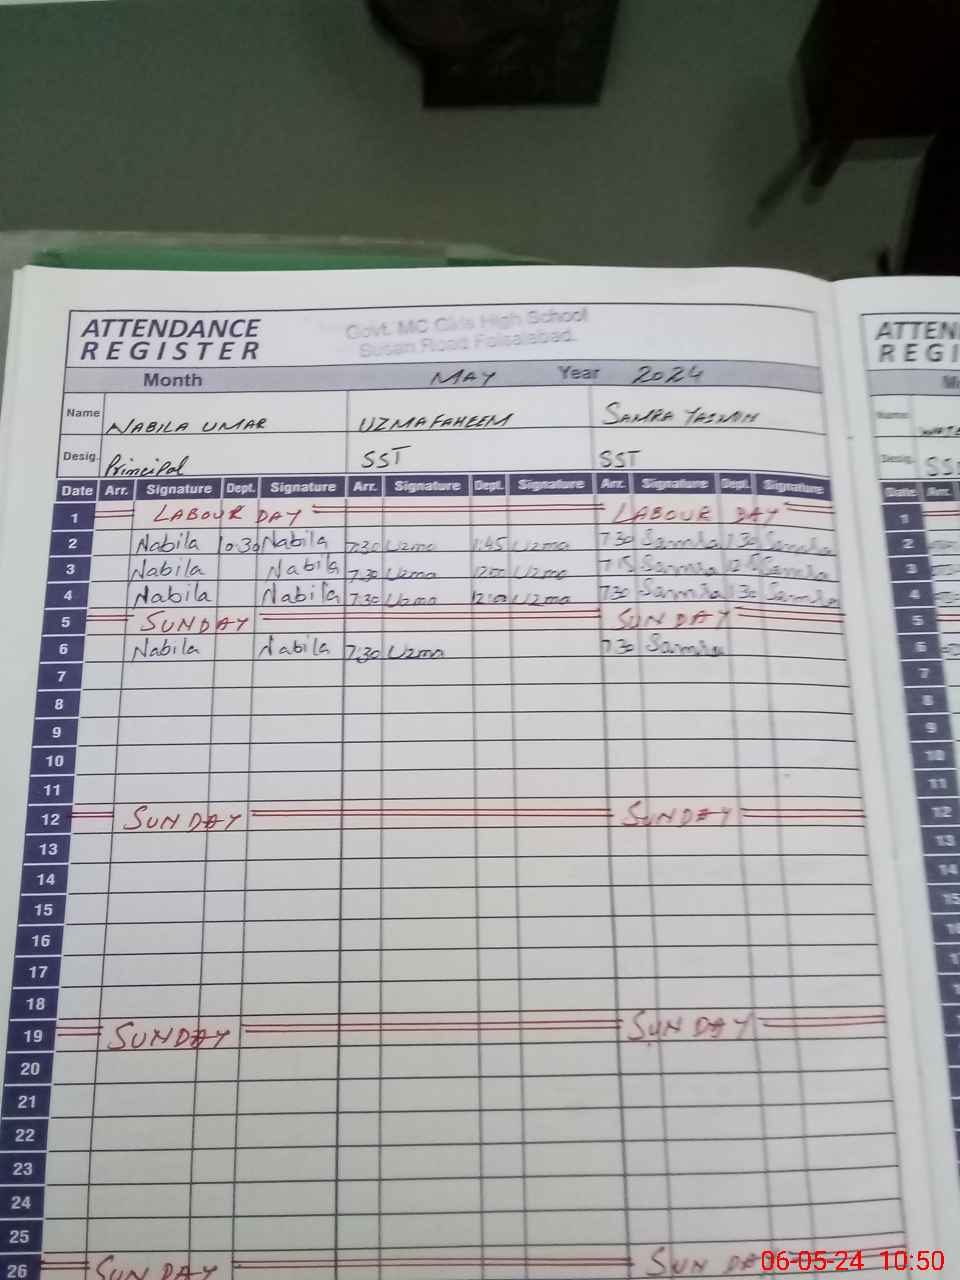 ATTENDANCE
REGISTER
Govt. MC Girls High School
Susan Road Faisalabad.
Month MAY Year 2024
Name NABILA UMAR UZMA FAHEEM SAMRA YASMIN
Desig. Principal SST SST
Date Arr. Signature Dept. Signature Arr. Signature Dept. Signature Arr. Signature Dept. Signature
1 LABOUR DAY LABOUR DAY
2 Nabila 10:30 Nabila 7:30 Uzma 1:45 Uzma 7:30 Samra 1:30 Samra
3 Nabila Nabila 7:30 Uzma 12:00 Uzma 7:15 Samra Samra
4 Nabila Nabila 7:30 Uzma 12:00 Uzma 7:30 Samra 1:30 Samra
5 SUNDAY SUNDAY
6 Nabila Nabila 7:30 Uzma 7:30 Samra
7
8
9
10
11
12 SUNDAY SUNDAY
13
14
15
16
17
18
19 SUNDAY SUNDAY
20
21
22
23
24
25
26 SUNDAY SUNDAY
ATTEN
REGI
Name
Desig. SS
Date Arr.
1
2
3
4
5
6
7
8
9
10
11
12
13
14
15
06-05-24 10:50